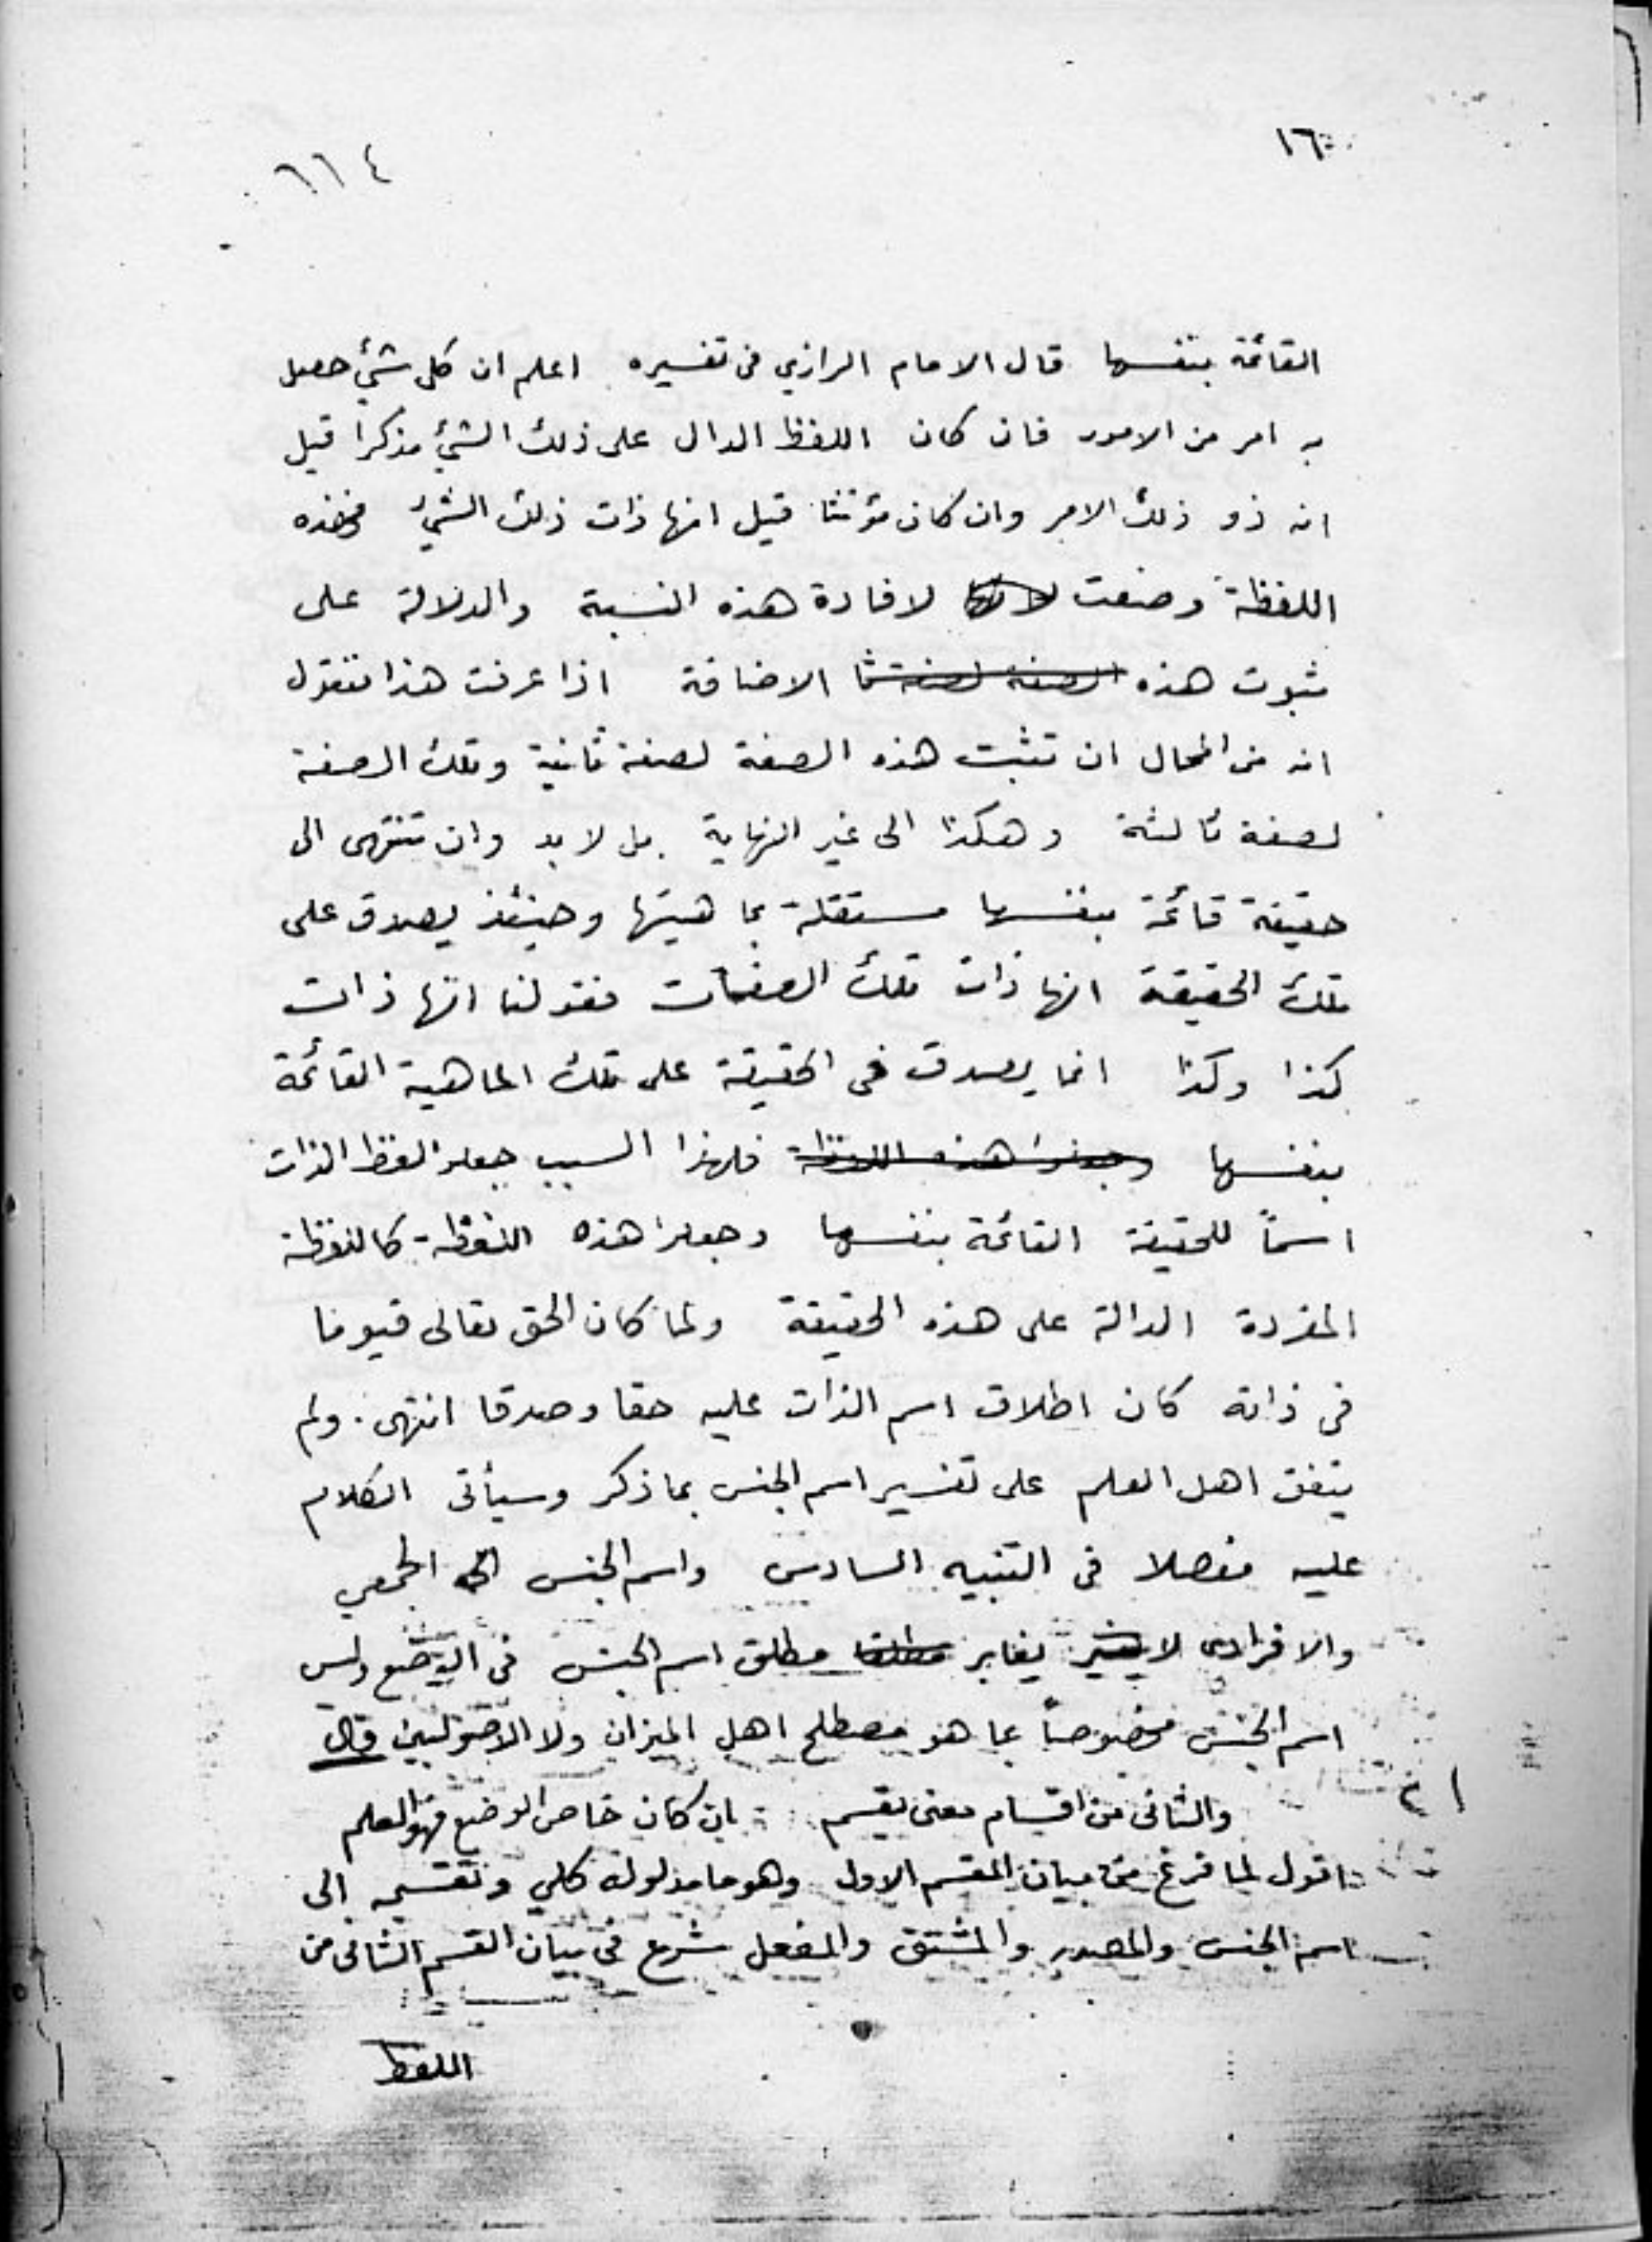 ١٦
٦٦٤
القائمة بنفسها قال الامام الرازي فى تفسيره اعلم ان كل شئ حصل
به امر من الامور فان كان اللفظ الدال على ذلك الشئ مذكرا قيل
انه ذو ذلك الامر وان كان مؤنثا قيل انها ذات ذلك الشئ فهذه
اللفظة وضعت لافادة هذه النسبة والدلالة على
ثبوت هذه الاضافة اذا عرفت هذا فنقول
انه من المحال ان تثبت هذه الصفة لصفة ثانية وتلك الصفة
لصفة ثالثة وهكذا الى غير النهاية بل لا بد وان تنتهى الى
حقيقة قائمة بنفسها مستقلة بماهيتها وحينئذ يصدق على
تلك الحقيقة انها ذات تلك الصفات فقولنا انها ذات
كذا وكذا انما يصدق فى الحقيقة على تلك الماهية القائمة
بنفسها فلهذا السبب جعلوا لفظ الذات
اسماً للحقيقة القائمة بنفسها وجعلوا هذه اللفظة كاللفظة
المفردة الدالة على هذه الحقيقة ولما كان الحق تعالى قيوما
فى ذاته كان اطلاق اسم الذات عليه حقا وصدقا انتهى. ولم
يتفق اهل العلم على تفسير اسم الجنس بما ذكر وسيأتى الكلام
عليه مفصلا فى التنبيه السادس واسم الجنس الجمعي
والافرادى لا يغاير مطلق اسم الجنس فى الوضع وليس
اسم الجنس مخصوصاً بما هو مصطلح اهل الميزان ولا الاصوليين قال
والثانى من اقسام معنى يقسم بان كان خاص الوضع فهو العلم
اقول لما فرغ من بيان المقسم الاول وهو ما مدلوله كلي وتقسيمه الى
اسم الجنس والمصدر والمشتق والفعل شرع فى بيان القسم الثانى من
اللفظ